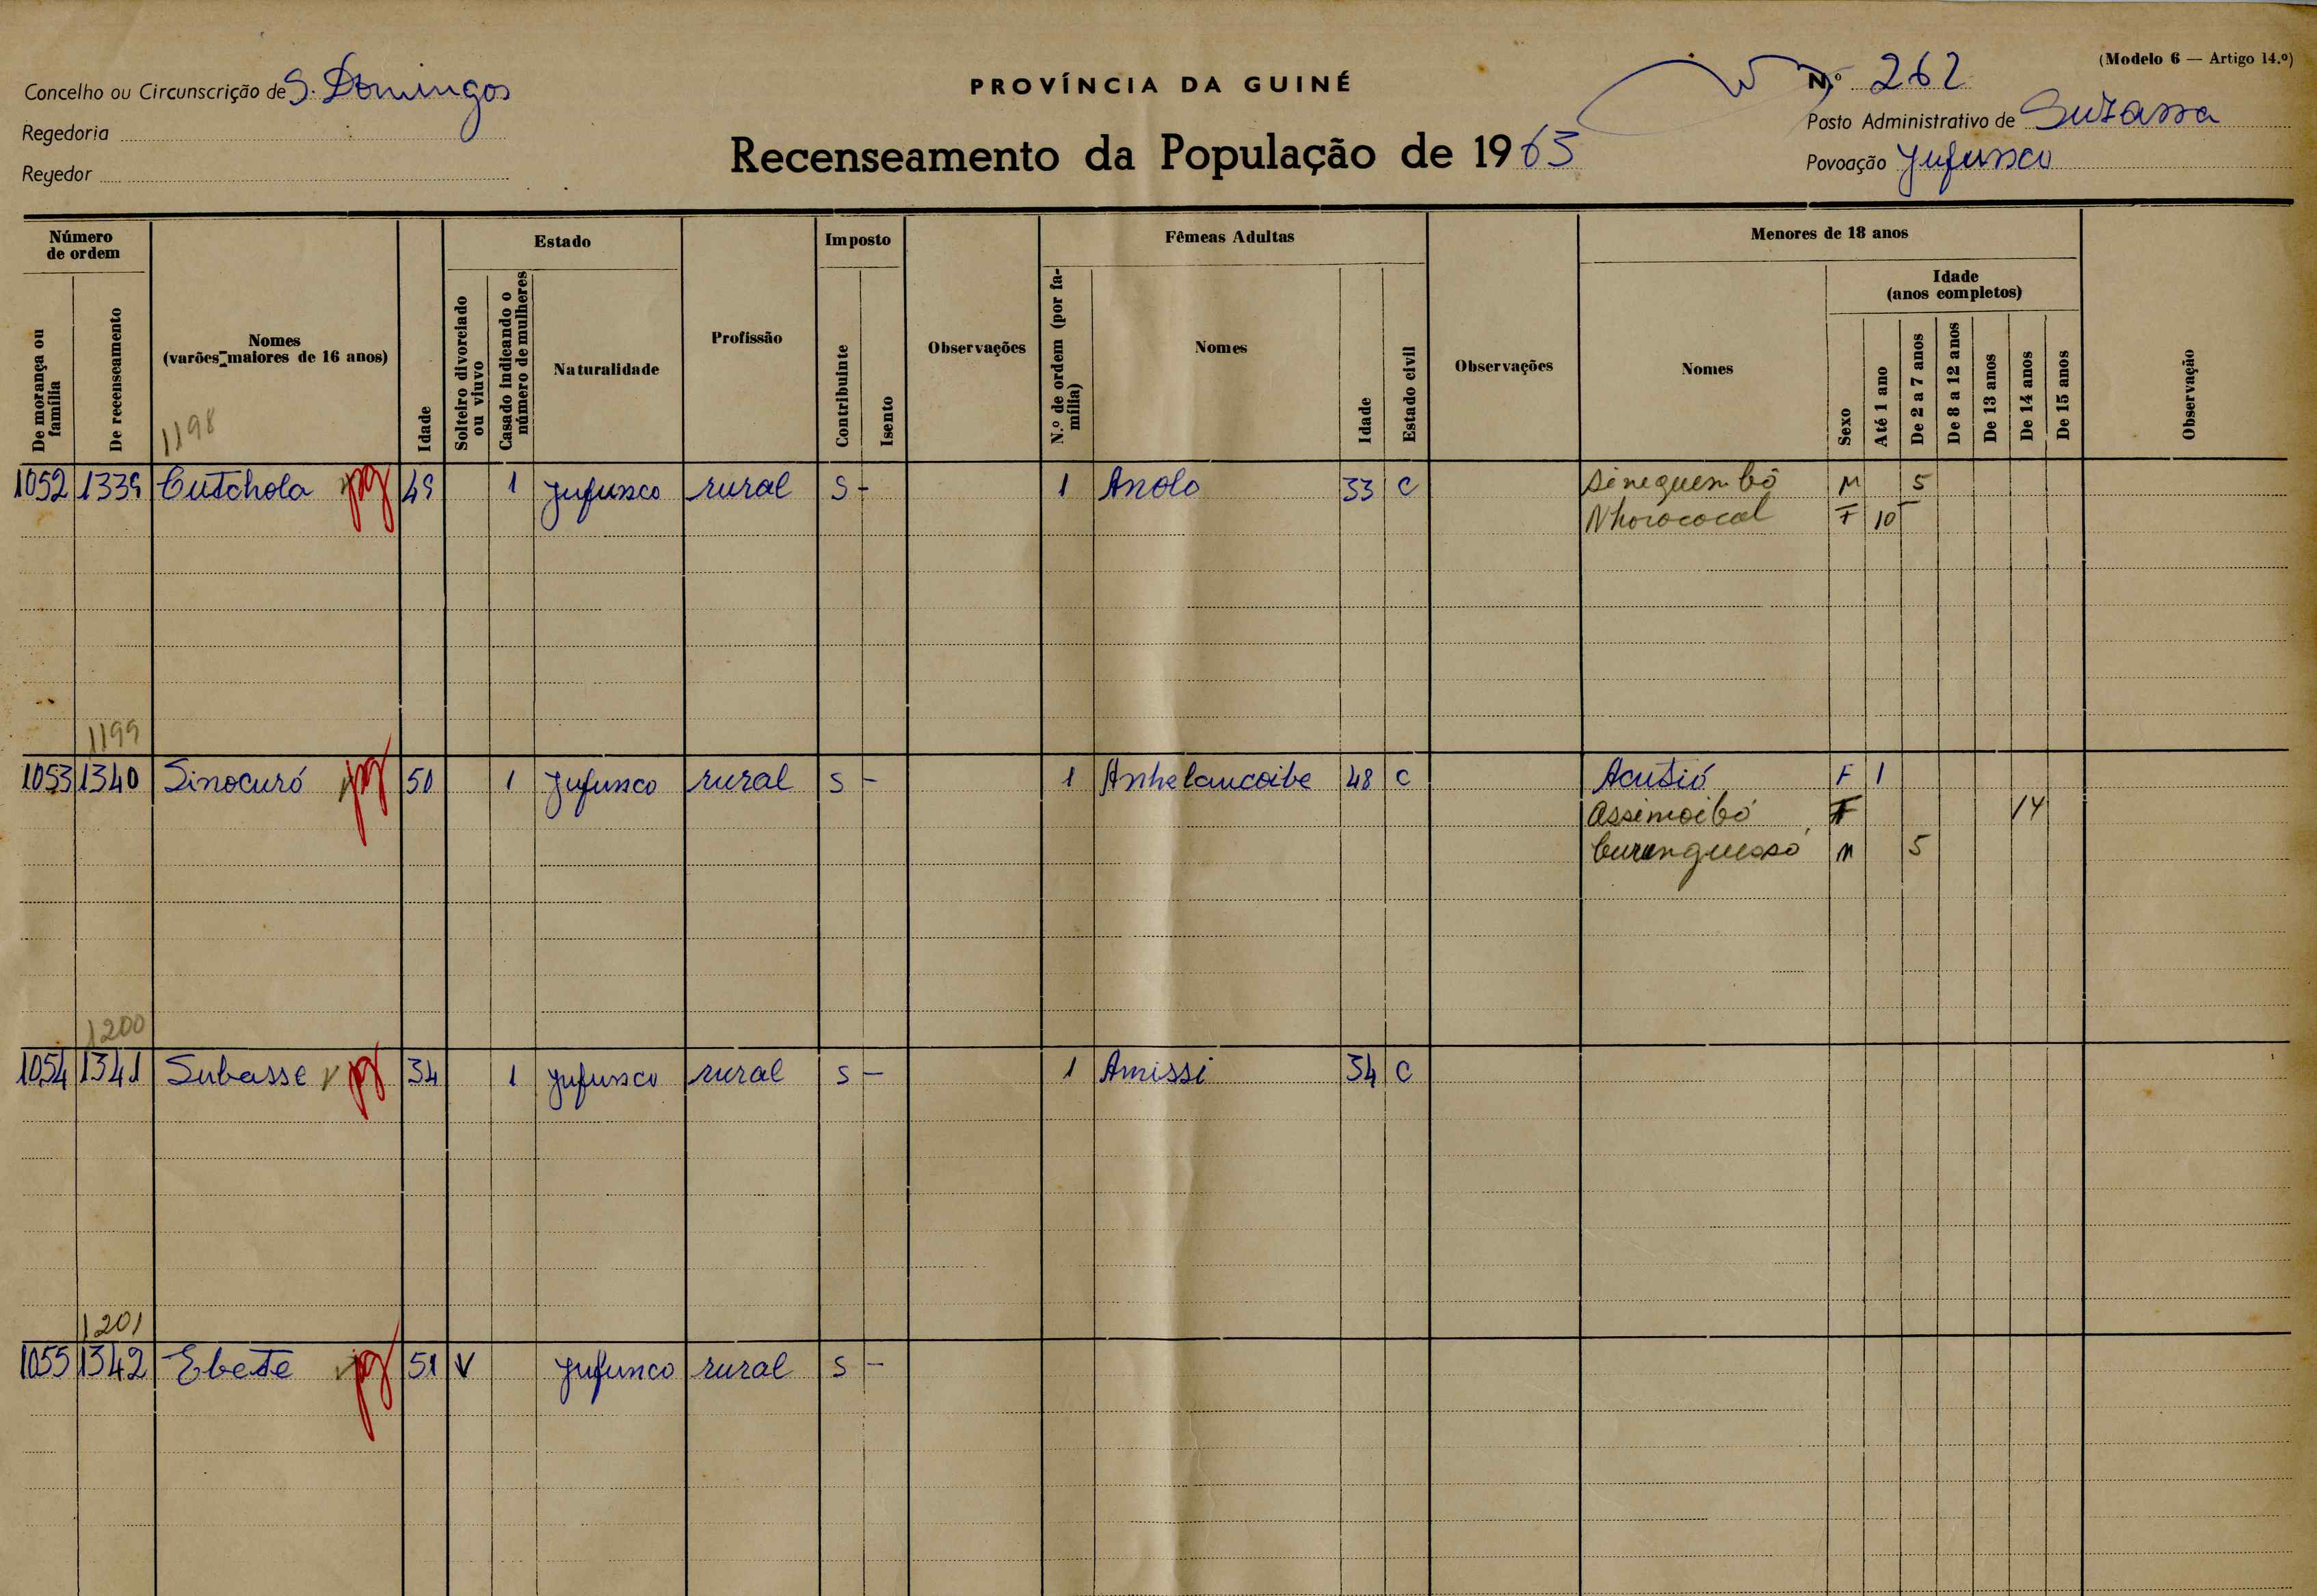 (Modelo 6 — Artigo 14.º)
Concelho ou Circunscrição de S. Domingos
PROVÍNCIA DA GUINÉ
N.º 262
Regedoria
Posto Administrativo de Suzana
Recenseamento da População de 1963
Regedor
Povoação Jufunco
Número de ordem
De morança ou família
De recenseamento
Nomes (varões maiores de 16 anos)
Idade
Estado
Solteiro divorciado ou viuvo
Casado indicando o número de mulheres
Naturalidade
Profissão
Imposto
Contribuinte
Isento
Observações
Fêmeas Adultas
N.º de ordem (por família)
Nomes
Idade
Estado civil
Observações
Menores de 18 anos
Nomes
Sexo
Idade (anos completos)
Até 1 ano
De 2 a 7 anos
De 8 a 12 anos
De 13 anos
De 14 anos
De 15 anos
Observação
1198
1052 1339 Cutchola 49 1 Jufunco rural S - 1 Anolo 33 C Sinequembó M 5
Nhorococal F 10
1199
1053 1340 Sinocuró 50 1 Jufunco rural S - 1 Anhelancoibe 48 C Acutió F 1
Assimoibó F 14
M 5
1200
1054 1341 Subasse 34 1 Jufunco rural S - 1 Amissi 34 C
1201
1055 1342 Ebete 51 V Jufunco rural S -